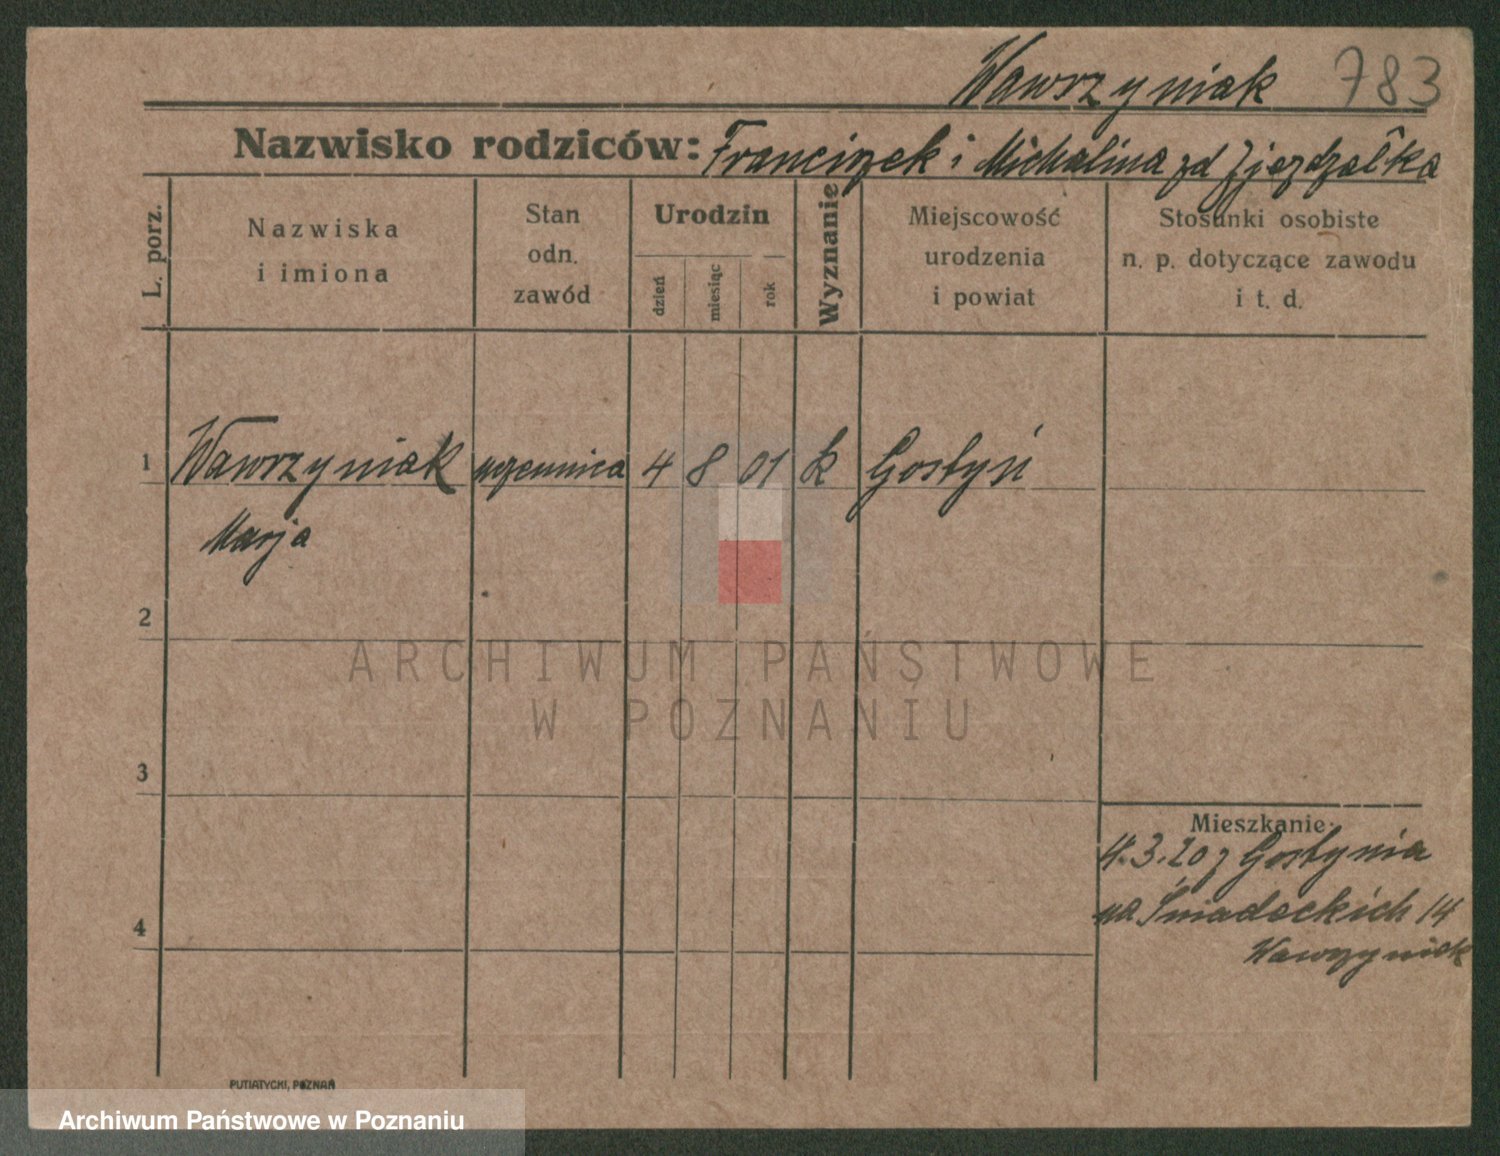 Wawrzyniak 783
Nazwisko rodziców: Franciszek i Michalina zd
L. porz.
Nazwiska
i imiona
Stan
odn.
zawód
Urodzin
dzień
miesiąc
rok
Wyznanie
Miejscowość
urodzenia
i powiat
Stosunki osobiste
n. p. dotyczące zawodu
i t. d.
1 Wawrzyniak uczennica 4 8 01 k Gostyń
Marja
2
3
4
Mieszkanie:
4.3.20 z Gostynia
na Śniadeckich 14
Wawrzyniak
PUTIATYCKI, POZNAŃ
ARCHIWUM PAŃSTWOWE
W POZNANIU
Archiwum Państwowe w Poznaniu